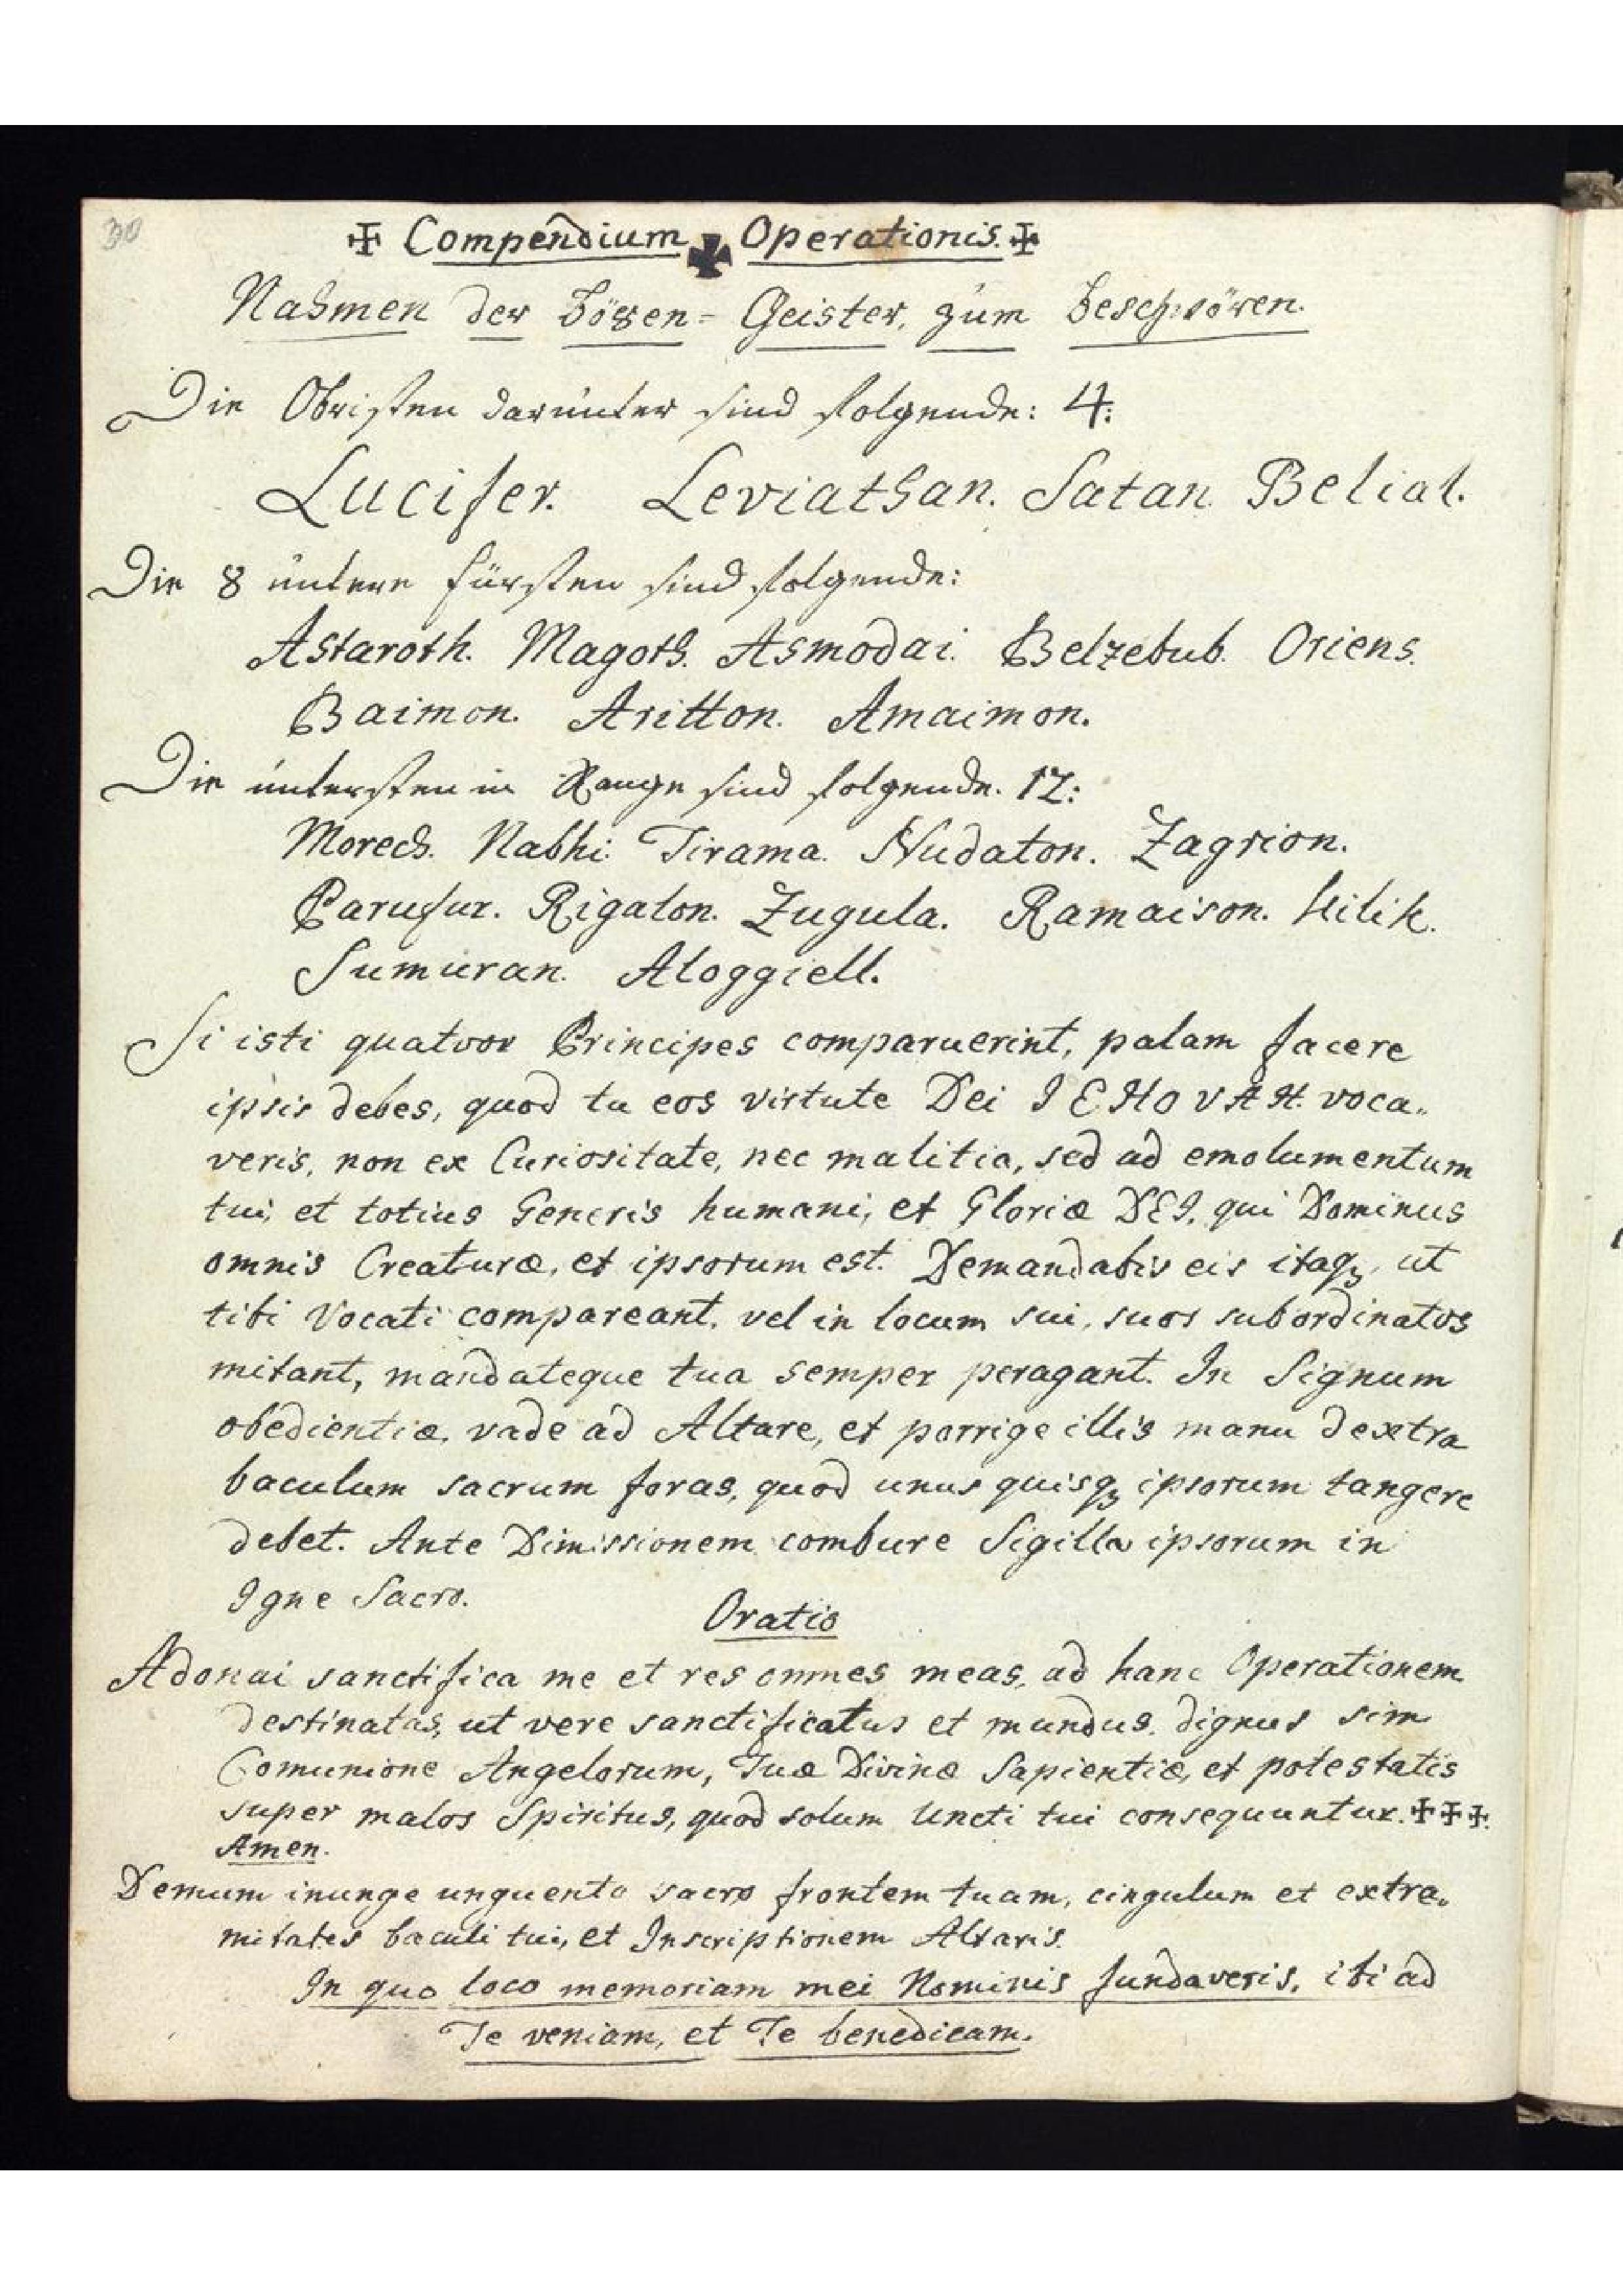 30
✠ Compendium ✠ Operationis. ✠
Nahmen der Bösen = Geister, zum Beschwören.
Die Obristen darunter sind folgende: 4:
Lucifer. Leviathan. Satan. Belial.
Die 8 untere Fürsten sind folgende:
Astaroth. Magoth. Asmodai. Belzebub. Oriens.
Baimon. Aritton. Amaimon.
Die untersten in Range sind folgende. 12:
Morech. Nabhi. Tirama. Nudaton. Zagrion.
Parufur. Rigalon. Zugula. Ramaison. Hilik.
Sumuran. Aloggiell.
Si isti quatvor Principes comparuerint, palam facere
ipsis debes, quod tu eos virtute Dei IEHOVAH. voca„
veris, non ex Curiositate, nec malitia, sed ad emolumentum
tui, et totius Generis humani, et Gloriæ DEI, qui Dominus
omnis Creaturæ, et ipsorum est. Demandabis eis itaqꝫ, ut
tibi Vocati compareant, vel in locum sui, suos subordinatos
mitant, mandateque tua semper peragant. In Signum
obedientiæ, vade ad Altare, et porrige illis manu dextra
baculum sacrum foras, quod unus quisqꝫ ipsorum tangere
debet. Ante Dimissionem combure Sigilla ipsorum in
Igne Sacro.
Oratio
Adonai sanctifica me et res omnes meas, ad hanc Operationem
destinatas, ut vere sanctificatus et mundus, dignus sim
Comunione Angelorum, Tuæ Divinæ Sapientiæ, et potestatis
super malos Spiritus, quod solum Uncti tui consequuntur. ✠ ✠ ✠.
Amen.
Demum inunge unguento sacro frontem tuam, cingulum et extre„
mitates baculi tui, et Inscriptionem Altaris.
In quo loco memoriam mei Nominis fundaveris, ibi ad
Te veniam, et Te benedicam.